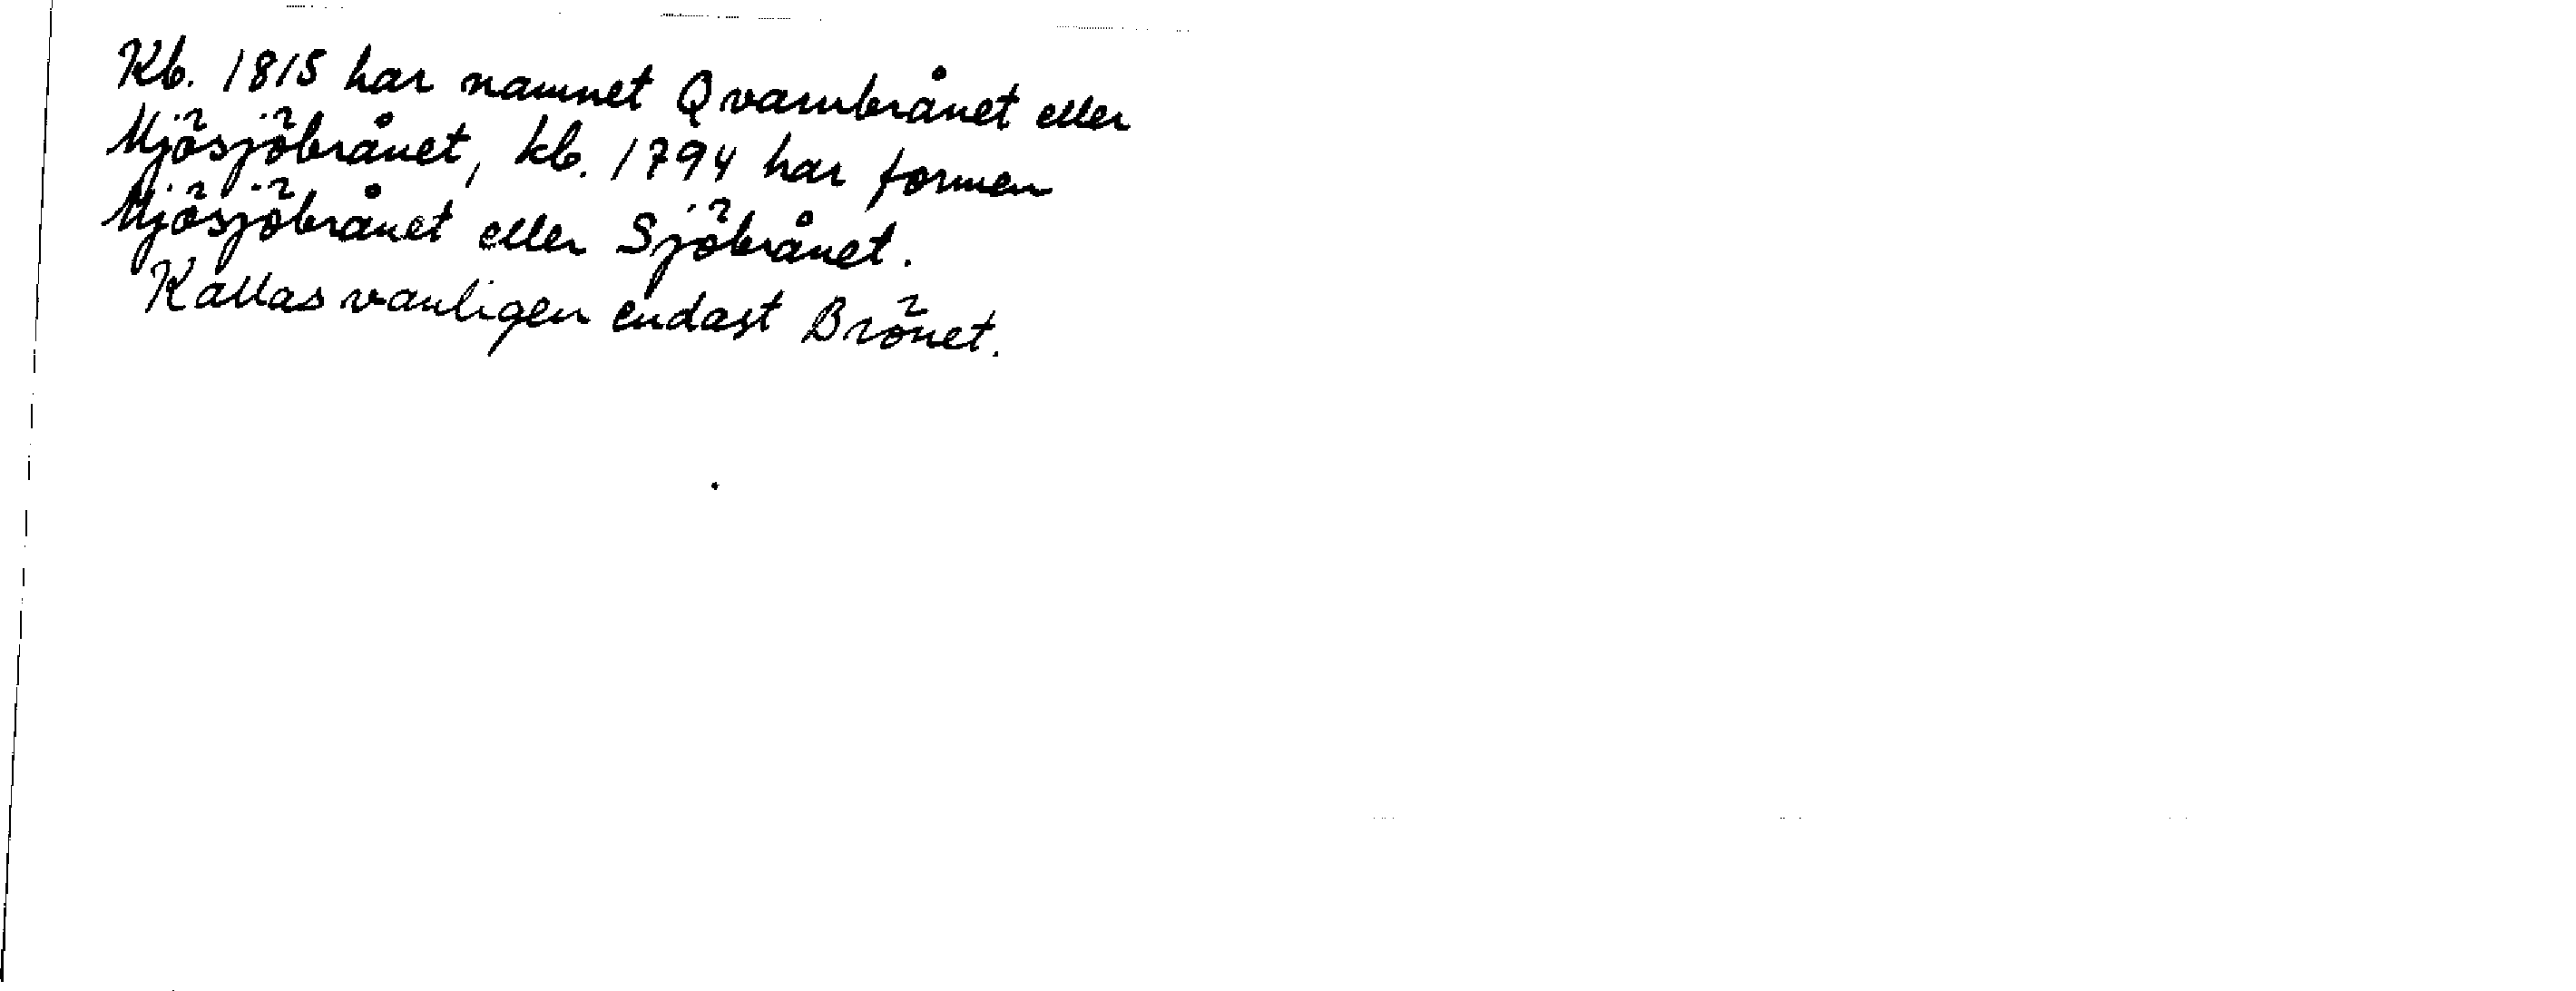 Kb. 1815 har namnet Qvarnbrånet eller
Mjösjöbrånet, kb. 1794 har formen
Mjösjöbrånet eller Sjöbrånet.
Kallas vanligen endast Brönet.